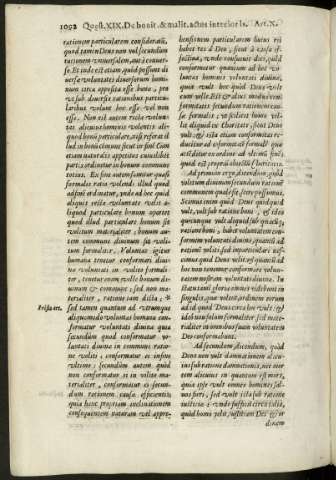 1092 Quæst. XIX. De bonit. & malit. actus interioris. Art. X.
rationem particularem considerati,
quod tamen Deus non vult secundum
rationem vniuersalem, aut e conuer-
so. Et inde est etiam quòd possunt di-
uersæ voluntates diuersorum homi-
num circa opposita esse bonæ, pro
vt sub diuersis rationibus particu-
laribus volunt hoc esse vel non
esse. Non est autem recta volun-
tas alicuius hominis volentis ali-
quod bonum particulare, nisi referat il-
lud in bonum commune sicut in finẽ: Cum
etiam naturalis appetitus cuiuslibet
partis ordinetur in bonum commune
totius. Ex fine autem sumitur quasi
formalis ratio volendi illud quod
ad finem ordinatur, vnde ad hoc quòd
aliquis recta voluntate velit a-
liquod particulare bonum oportet
quod illud particulare bonum sit
volitum materialiter: bonum au-
tem commune diuinum sit voli-
tum formaliter. Voluntas igitur
humana tenetur conformari diui-
næ voluntati in volito formali-
ter, tenetur enim velle bonum di-
uinum & commune: sed non ma-
terialiter, ratione iam dicta; *
sed tamen quantum ad vtrumque
aliquo modo voluntas humana con-
formatur voluntati diuinæ quia
secundum quod conformatur vo-
luntati diuinæ in communi ratio-
ne voliti; conformatur ei in fine
vltimo: secundum autem quòd
non conformatur ei in volito ma-
terialiter, conformatur ei secun-
dum rationem causæ efficientis,
quia hanc propriam inclinationem
consequentem naturam vel appre-
hensionem particularem huius rei
habet res à Deo, sicut à causa ef-
fectiua, vnde consueuit dici, quòd
conformatur quantum ad hoc vo-
luntas hominis diuinæ voluntati,
quia vult hoc quod Deus vult
eum velle. Est & alius modus con-
formitatis secundum rationem cau-
sæ formalis, vt scilicet homo ve-
lit aliquid ex charitate, sicut Deus
vult, & ista etiam conformitas re-
ducitur ad conformitatem formalem quæ
attẽditur ex ordine ad vltimũ finẽ,
quod est propriũ obiectũ charitatis.
Ad primum ergo dicendum, quòd
volitum diuinum secundum rationẽ
communem quale sit, scire possumus.
Scimus enim quòd Deus quidquid
vult, vult sub ratione boni, & ideo
quicunque vult aliquid sub quacũq;
ratione boni, habet voluntatem con-
formem voluntati diuinæ quantũ ad
rationẽ voliti, sed in particulari nes-
cimus quid Deus velit, & quantũ ad
hoc non tenemur conformare volun-
tatem nostram voluntati diuinæ. In
statu tamẽ gloriæ omnes videbunt in
singulis, quæ volent ordinem eorum
ad id quod Deus circa hoc vult: &
ideo non solum formaliter, sed ma-
terialiter in omnibus suam voluntatem
Deo conformabunt.
Ad secundum dicendum, quòd
Deus non vult damnationem alicu-
ius sub ratione damnationis, nec mor-
tem alicuius in quantum est mors,
quia ipse vult omnes homines sal-
uos fieri, sed vult ista sub ratione
iustitiæ: vnde sufficit circa talia,
quòd homo velit, iustitiam Dei & or
dinem